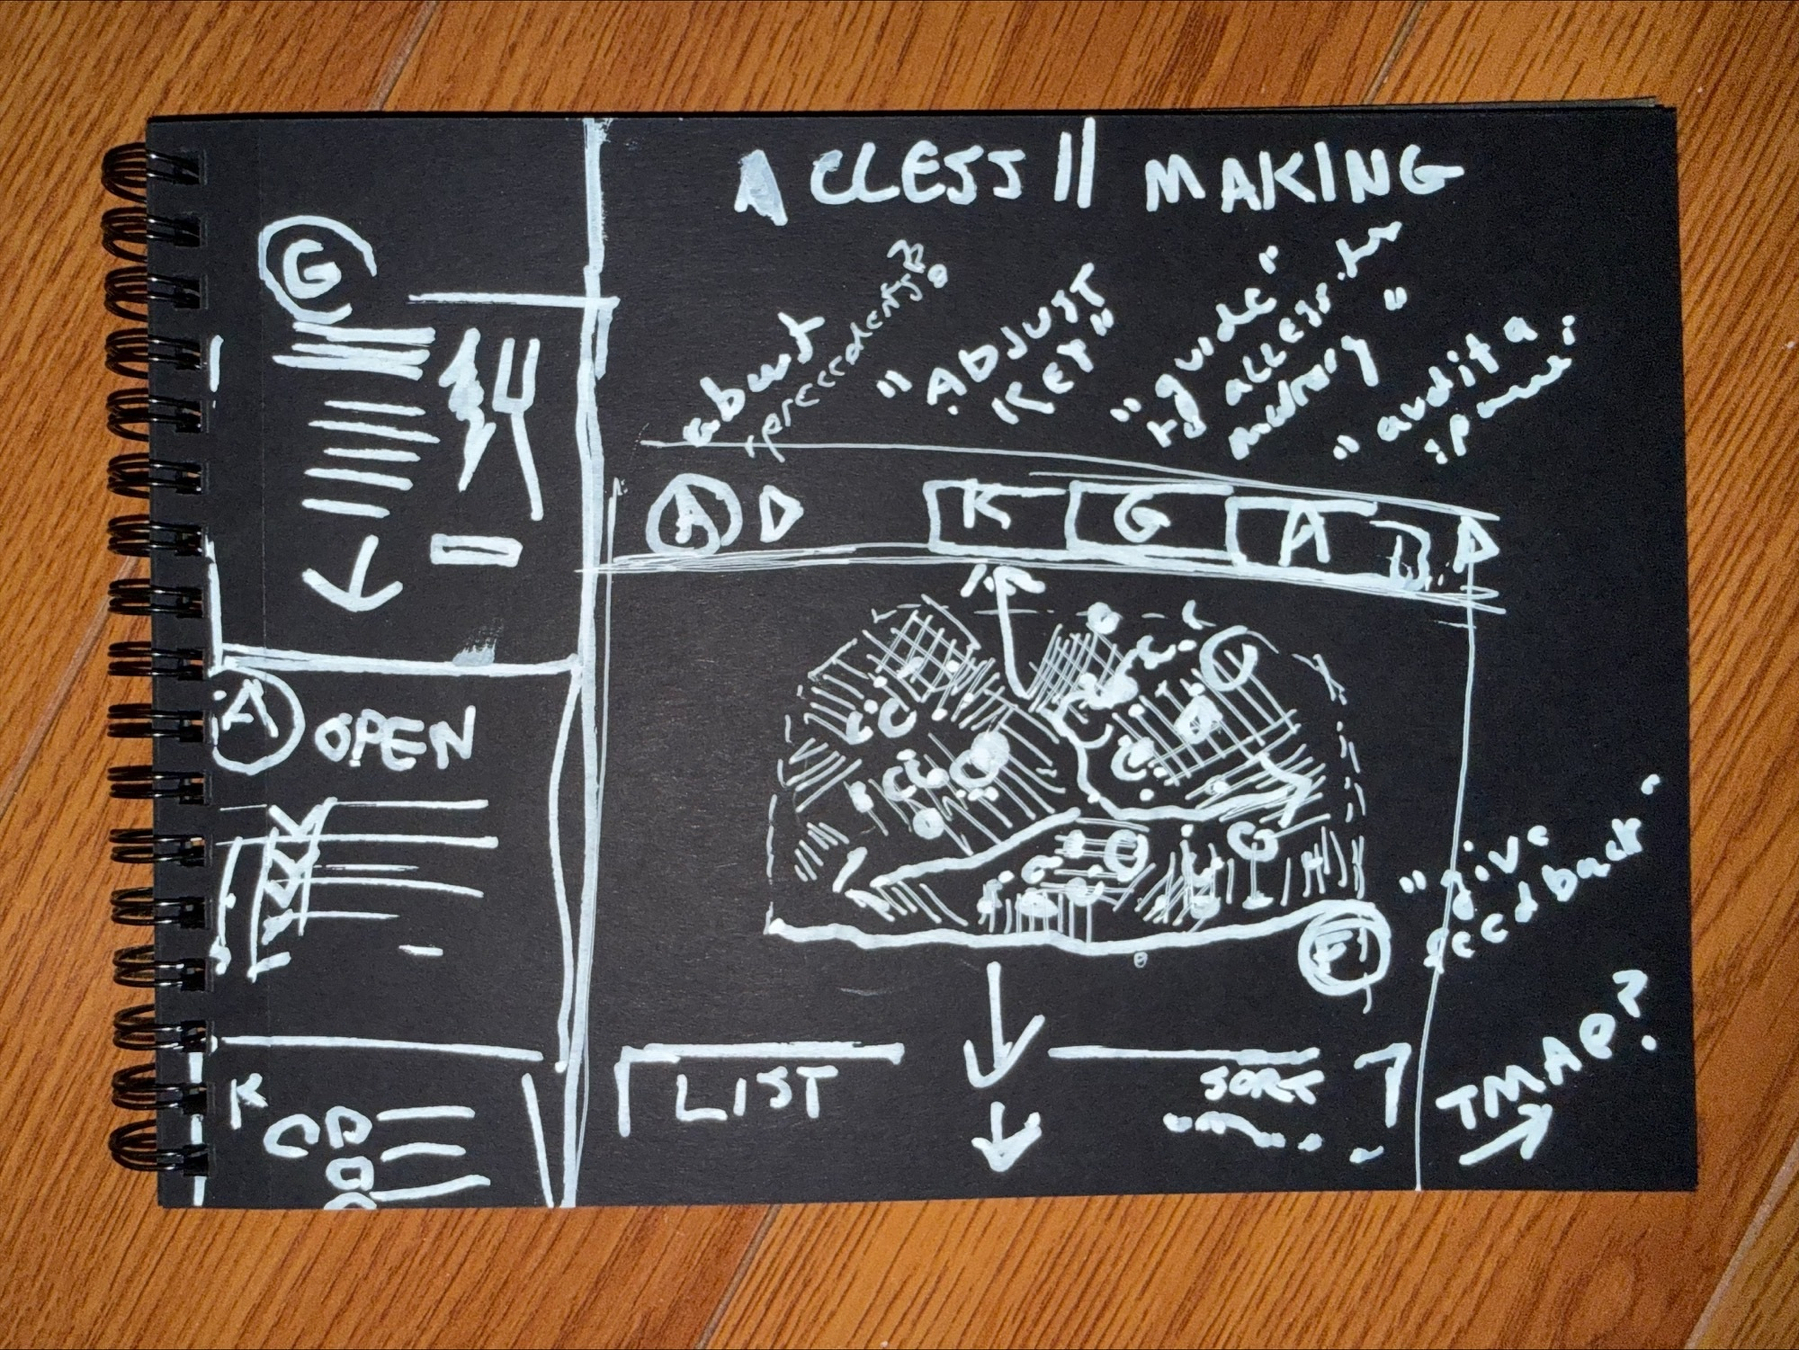 ACCESS || MAKING
about
precedents
"ADJUST
KEY"
"guide"
to access
making"
"audit a
space"
A D
K G A D
G
A OPEN
K
C
F
"give
feedback"
LIST
SORT
TMAP?